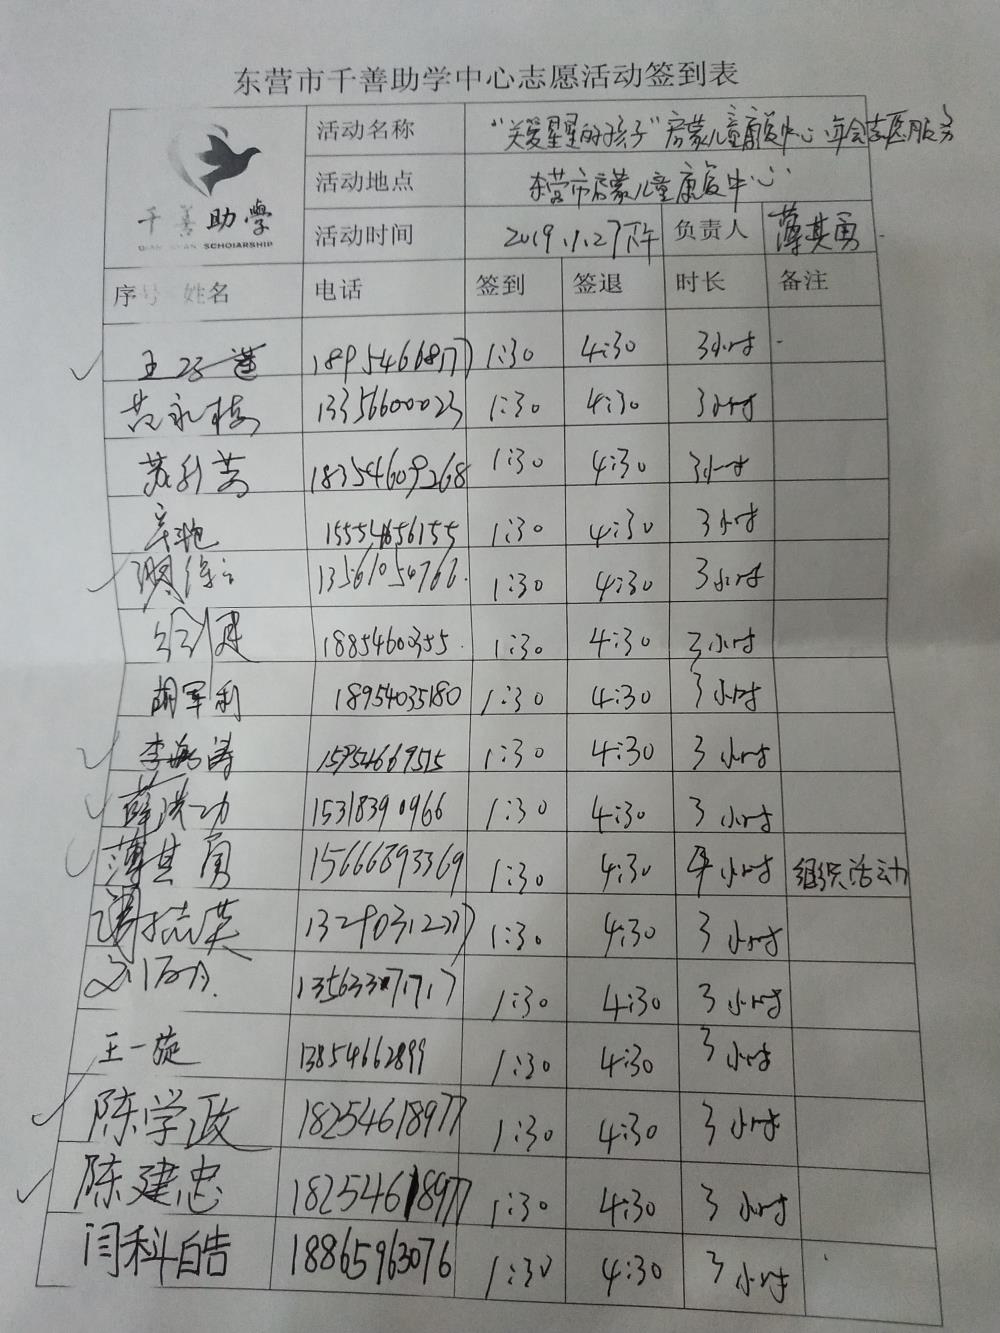 东营市千善助学中心志愿活动签到表
千善助學 SCHOlARSHIP
活动名称 “关爱星星的孩子”启蒙儿童康复中心年会志愿服务
活动地点 东营市启蒙儿童康复中心
活动时间 2019.1.27下午 负责人 薄其勇
序号 姓名 电话 签到 签退 时长 备注
18954668177 1:30 4:30 3小时
黄永梅 13356600023 1:30 4:30 3小时
苏秋英 18354609268 1:30 4:30 3小时
15554656155 1:30 4:30 3小时
13561054766 1:30 4:30 3小时
18854600355 1:30 4:30 3小时
胡军利 18954035180 1:30 4:30 3小时
李海涛 15954669515 1:30 4:30 3小时
薛洪功 15318390966 1:30 4:30 3小时
薄其勇 15666893369 1:30 4:30 4小时 组织活动
1:30 4:30 3小时
1:30 4:30 3小时
王一旋 13854662899 1:30 4:30 3小时
陈学政 18254618977 1:30 4:30 3小时
陈建忠 18254618977 1:30 4:30 3小时
闫科皓 18865963076 1:30 4:30 3小时